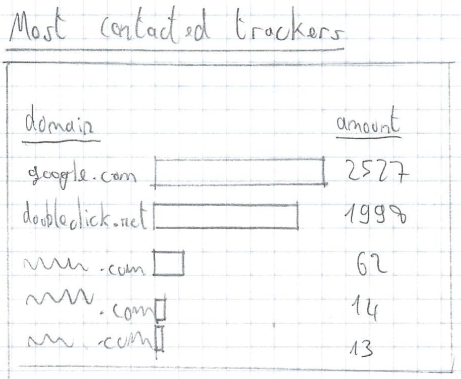 Most contacted trackers
domain amount
google.com 2527
doubleclick.net 1998
.com 62
.com 14
.com 13